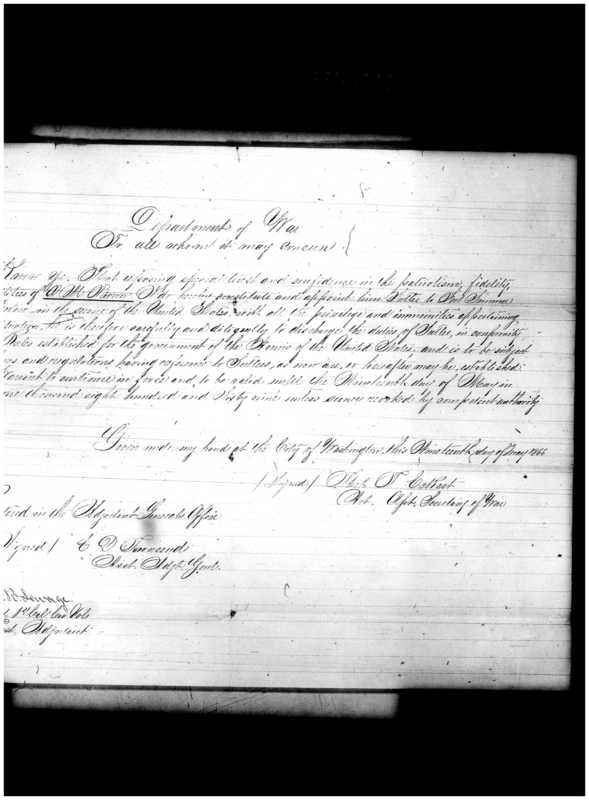 Department of War
To all whom it may concern.
Know ye. That reposing special trust and confidence in the patriotism, fidelity,
of W. M. Brown I do hereby constitute and appoint him Sutler to Fort Sumner
in the service of the United States with all the privilege and immunities appertaining
It is therefore carefully and diligently to discharge the duties of Sutler, in conformity
Rules established for the government of the Armies of the United States, and is to be subject
and regulations having reference to Sutlers, as now are, or hereafter may be, established:
to continue in force and to be valid until the Nineteenth day of May in
one thousand eight hundred and Sixty nine unless sooner revoked by competent authority
Given under my hand at the City of Washington, this Nineteenth day of May 1866
(Signed) T. Eckert
Act. Asst. Secretary of War
in the Adjutant Generals Office
Signed) E D Townsend
Asst. Adjt. Genl.
1st Cal Cav Vols
Adjutant